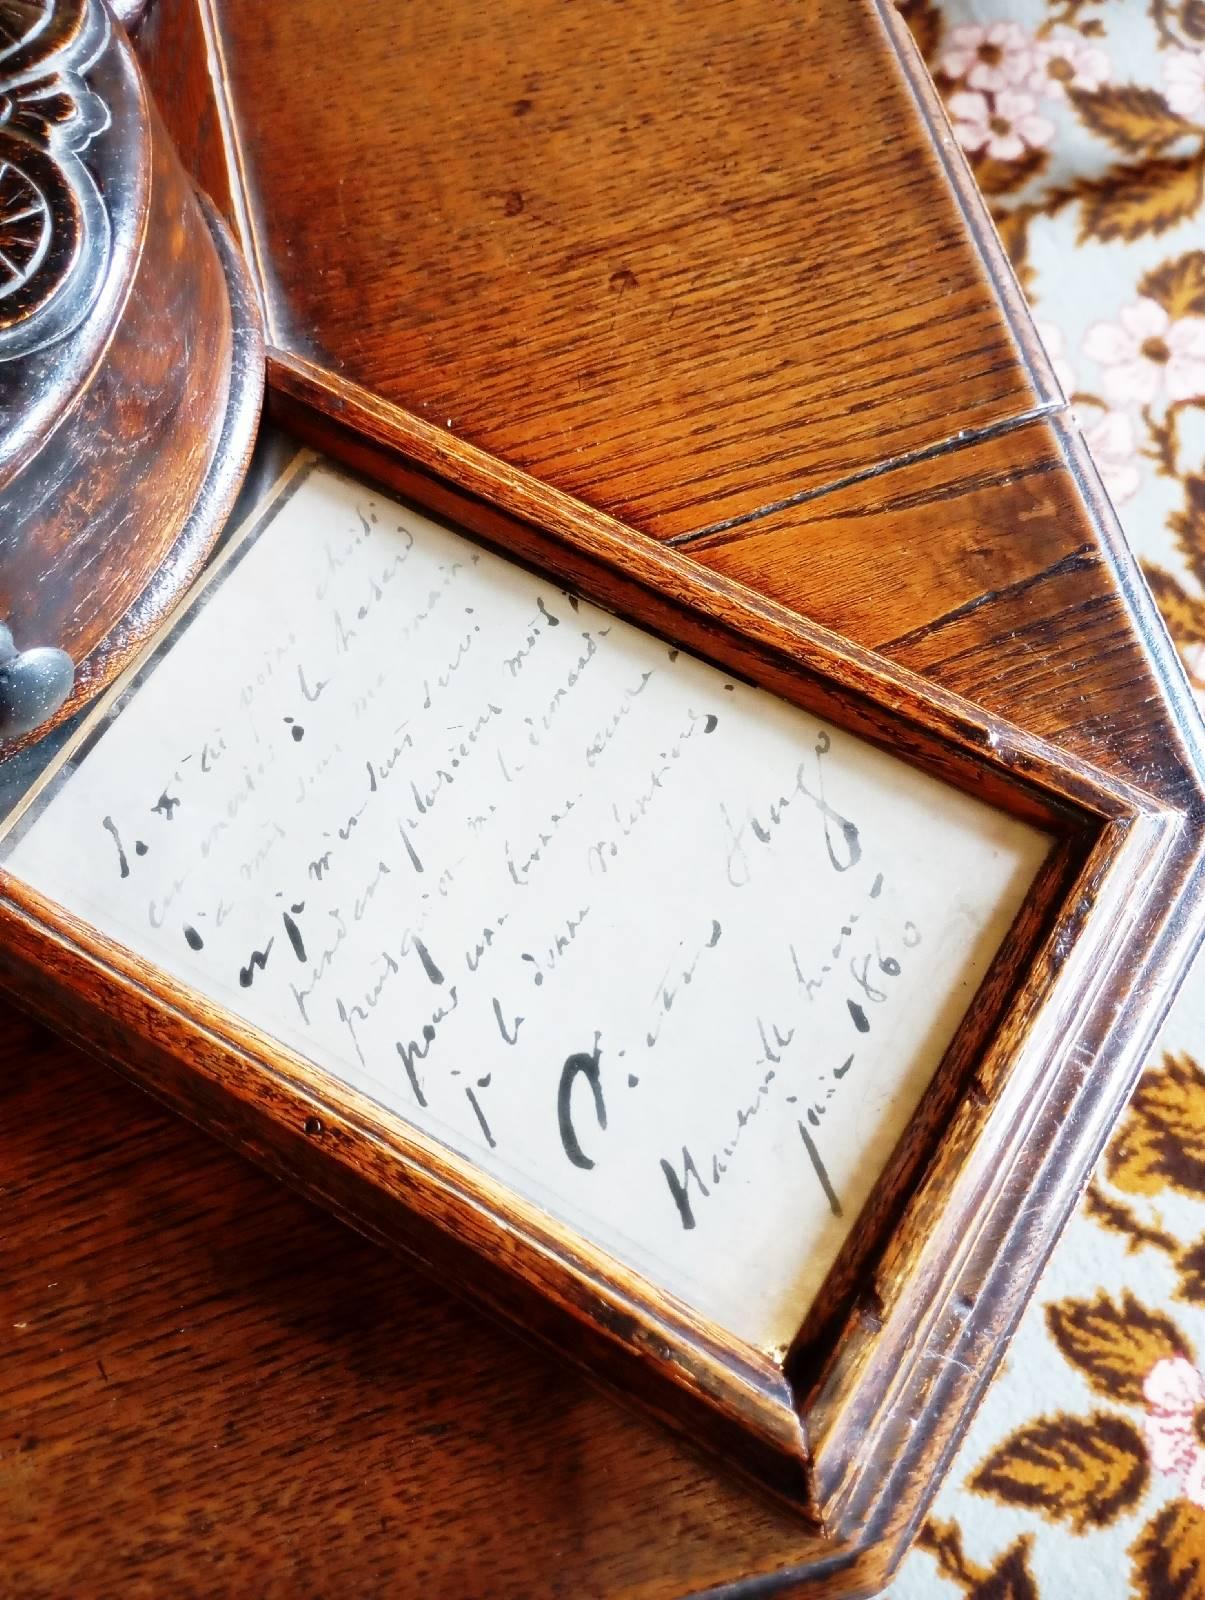 Je n'ai point choisi
cet encrier ; le hasard
l'a mis sous ma main ;
et je m'en suis servi
pendant plusieurs mois ;
puisqu'on me le demande
pour une bonne œuvre ;
je le donne volontiers.
Victor Hugo
Hauteville house
juin 1860